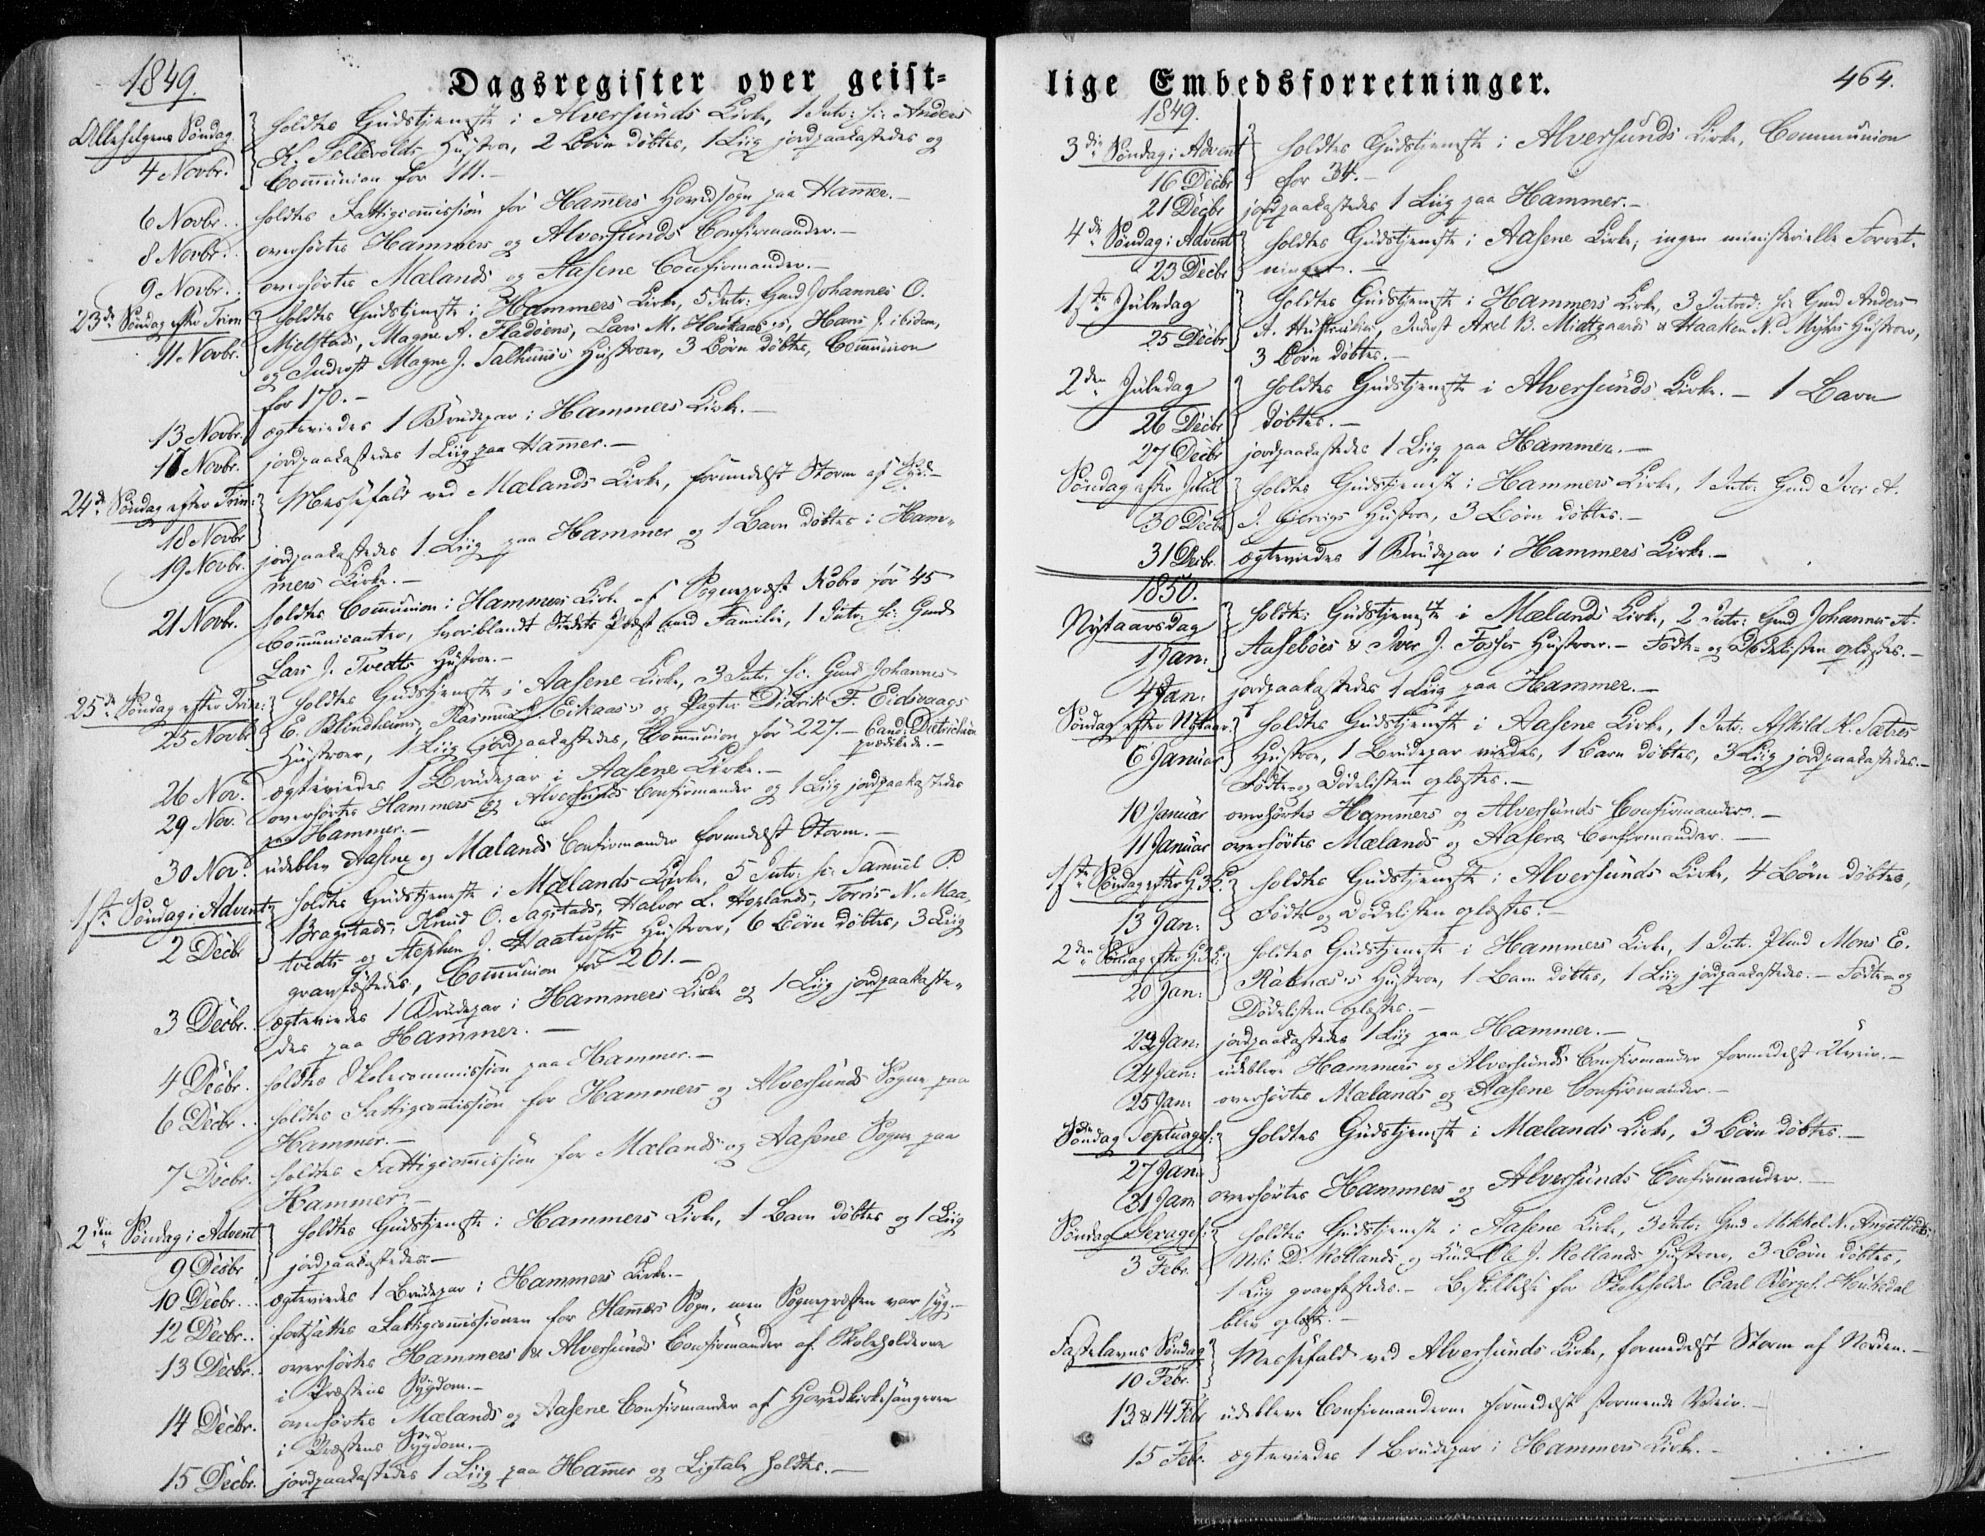 1849.
Dagsregister over geist-
Allehelgens Søndag
4 Novbr.
holdtes Gudstjeneste i Alversunds Kirke, 1 Intr: sc: Anders
K. Tellevolds Hustroe, 2 Børn døbtes, 1 Liig jordpaakastedes og
Communion for 111.-
6 Novbr. holdtes Fattigcommission for Hamers Hovedsogn paa Hamer.-
8 Novbr. overhørtes Hammers og Alversunds Confirmander.-
9 Novbr. overhørtes Mælands og Aasene Confirmander.-
23de Søndag efter Trin:
11 Novbr.
holdtes Gudstjeneste i Hammers Kirke, 5 Intr: Gmd Johannes O.
Mjelstads, Magne A. Fladøens, Lars M. Hans J. ibidem,
og Inderst Magne J. Salhuus's Hustroer, 3 Børn døbtes, Communion
for 170.-
13 Novbr. ægteviedes 1 Brudepar i Hammers Kirke.-
17 Novbr. jordpaakastedes 1 Liig paa Hamer.-
24de Søndag efter Trin:
18 Novbr.
Messefald ved Mælands Kirke, formedelst Storm af Syd.-
19 Novbr. jordpaakastedes 1 Liig paa Hammer og 1 Barn døbtes i Ham-
mers Kirke.-
21 Novbr. holdtes Communion i Hammers Kirke af Sognepræst Kobro for 45
Communicanter, hvoriblandt Stedets Præst med Familie, 1 Intr: sc: Gmds
Lars J. Tvedts Hustroe.-
25de Søndag efter Trin:
25 Novbr.
holdtes Gudstjeneste i Aasene Kirke, 3 Intr: sc: Gmd Johannes
E. Blindheims, Rasmus J. Eikaas's og Pagter Didrik F. Eidsvaags
Hustroer, 1 Liig jordpaakastedes, Communion for 227.- Cand: Dietrichson
prædikede.-
26 Nov. ægteviedes 1 Brudepar i Aasene Kirke.-
29 Nov. overhørtes Hammers og Alversunds Confirmander og 1 Liig jordpaakastedes
paa Hammer.-
30 Nov. udeblev Aasene og Mælands Confirmander formedelst Storm.-
1ste Søndag i Advent
2 Decbr
holdtes Gudstjeneste i Mælands Kirke, 5 Intr: sc: Samuel P.
Bragstads, Knud O. Sagstads, Halvor L. Hoplands, Torris N. Maa-
tvedts og Stephen J. Haatufts Hustroer, 6 Børn døbtes, 3 Liig
gravfæstedes, Communion for 201.-
3 Decbr. ægteviedes 1 Brudepar i Hammers Kirke og 1 Liig jordpaakaste-
des paa Hammer.-
4 Decbr. holdtes Skolecommission paa Hammer.-
6 Decbr. holdtes Fattigcommission for Hammers og Alversunds Sogne paa
Hammer.-
7 Decbr. holdtes Fattigcommission for Mælands og Aasene Sogne paa
Hammer.-
2den Søndag i Advent
9 Decbr
holdtes Gudstjeneste i Hammers Kirke, 1 Barn døbtes og 1 Liig
jordpaakastedes.-
10 Decbr. ægteviedes 1 Brudepar i Hammers Kirke.-
12 Decbr. fortsattes Fattigcommissionen for Hamers Sogn, men Sognepræsten var syg.-
13 Decbr. overhørtes Hammers & Alversunds Confirmander af Skoleholderne
i Præstens Sygdom.-
14 Decbr. overhørtes Mælands og Aasene Confirmander af Hovedkirkesangeren
i Præstens Sygdom.-
15 Decbr. jordpaakastedes 1 Liig paa Hamer og Ligtale holdtes.-
lige Embedsforretninger.
464.
1849.
3die Søndag i Advent
16 Decbr
holdtes Gudstjeneste i Alversunds Kirke, Communion
for 34.-
21 Decbr jordpaakastedes 1 Liig paa Hammer.-
4de Søndag i Advent
23 Decbr
holdtes Gudstjeneste i Aasene Kirke, ingen ministerielle Forret-
ninger.-
1ste Juledag
25 Decbr
holdtes Gudstjeneste i Hammers Kirke, 3 Introd: sc: Gmd Anders
Inderst Axel B. Midtgaards & Haaken N. Myhrs Hustroer,
3 Børn døbtes.-
2den Juledag
26 Decbr
holdtes Gudstjeneste i Alversunds Kirke.- 1 Barn
døbtes.-
27 Decbr jordpaakastedes 1 Liig paa Hammer.-
Søndag efter Juul
30 Decbr
holdtes Gudstjeneste i Hammers Kirke, 1 Intr: Gmd Iver A.
J. Hustroe, 3 Børn døbtes.-
31 Decbr. ægteviedes 1 Brudepar i Hammers Kirke.-
1850.
Nytaarsdag
1 Jan:
holdtes Gudstjeneste i Mælands Kirke, 2 Intr: Gmd Johannes A.
Aasebøes & Iver J. Fosses Hustroer.- Føde- og Dødelisten oplæstes.-
4 Jan: jordpaakastedes 1 Liig paa Hammer.-
Søndag efter Nytaar
6 Januar
holdtes Gudstjeneste i Aasene Kirke, 1 Intr: Askild K. Sætres
Hustroe, 1 Brudepar viedes, 1 Barn døbtes, 3 Liig jordpaakastedes.-
Føde- og Dødelisten oplæstes.-
10 Januar overhørtes Hammers og Alversunds Confirmander.-
11 Januar overhørtes Mælands og Aasene Confirmander.-
1ste Søndag efter H.3K.
13 Jan:
holdtes Gudstjeneste i Alversunds Kirke, 4 Børn døbtes,
Føde og Dødelisten oplæstes.-
2den Søndag efter H.3K.
20 Jan:
holdtes Gudstjeneste i Hammers Kirke, 1 Intr. Mons E.
Raknæs's Hustroe, 1 Barn døbtes, 1 Liig jordpaakastedes.- Føde- og
Dødelisten oplæstes.-
22 Jan: jordpaakastedes 1 Liig paa Hammer.-
24 Jan: udebleve Hammers og Alversunds Confirmander formedelst Uveir.-
25 Jan: overhørtes Mælands og Aasene Confirmander.-
Søndag Septuages:
27 Jan:
holdtes Gudstjeneste i Mælands Kirke, 3 Børn døbtes.-
31 Jan overhørtes Hammers og Alversunds Confirmander.-
Søndag Sexages:
3 Febr.
holdtes Gudstjeneste i Aasene Kirke, 3 Intr: Gmd Mikkel N.
Nils D. Rollands og Ole J. Rollands Hustroer, 3 Børn døbtes,
1 Liig gravfæstedes.- Bestillelse for Skoleholder Carl Børges.
blev oplæst.-
Fastelavns Søndag
10 Febr.
Messefald ved Alversunds Kirke, formedelst Storm af Norden.-
13 & 14 Febr udebleve Confirmanderne formedelst stormende Veir.-
15 Febr. ægteviedes 1 Brudepar i Hammers Kirke.-